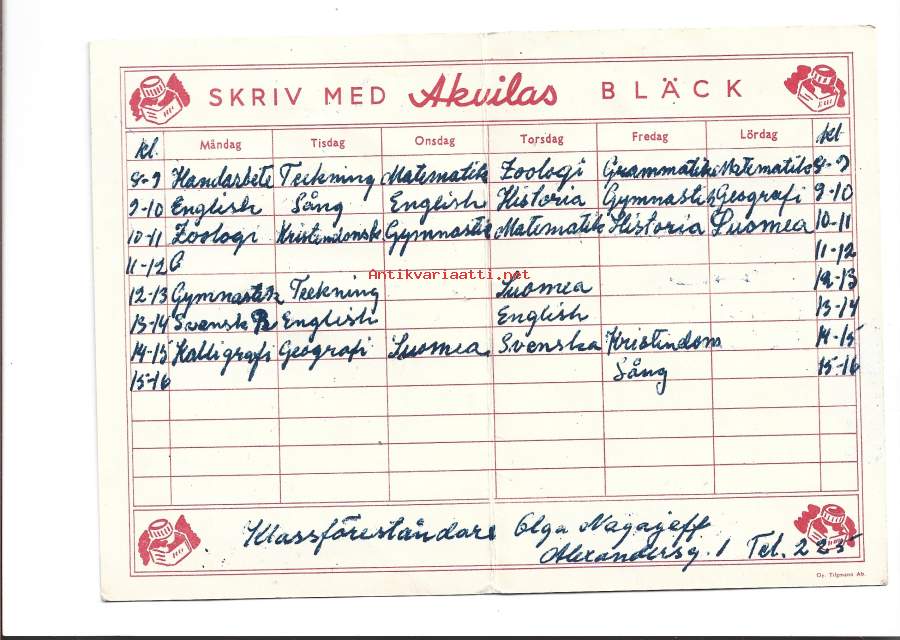 SKRIV MED Akvilas BLÄCK
kl. Måndag Tisdag Onsdag Torsdag Fredag Lördag kl
8-9 Handarbete Teckning Matematik Zoologi Grammatik Matematik 8-9
9-10 English Sång English Historia Gymnastik Geografi 9-10
10-11 Zoologi Kristendomsk Gymnastik Matematik Historia Suomea 10-11
11-12 11-12
Antikvariaatti.net
12-13 Gymnastik Teckning Suomea 12-13
13-14 Svensk English English 13-14
14-15 Kalligrafi Geografi Suomea Svenska Kristendom 14-15
15-16 Sång 15-16
Klassföreståndare Olga Nagajeff
Alexandersg. 1 Tel. 225
Oy. Tilgmann Ab.